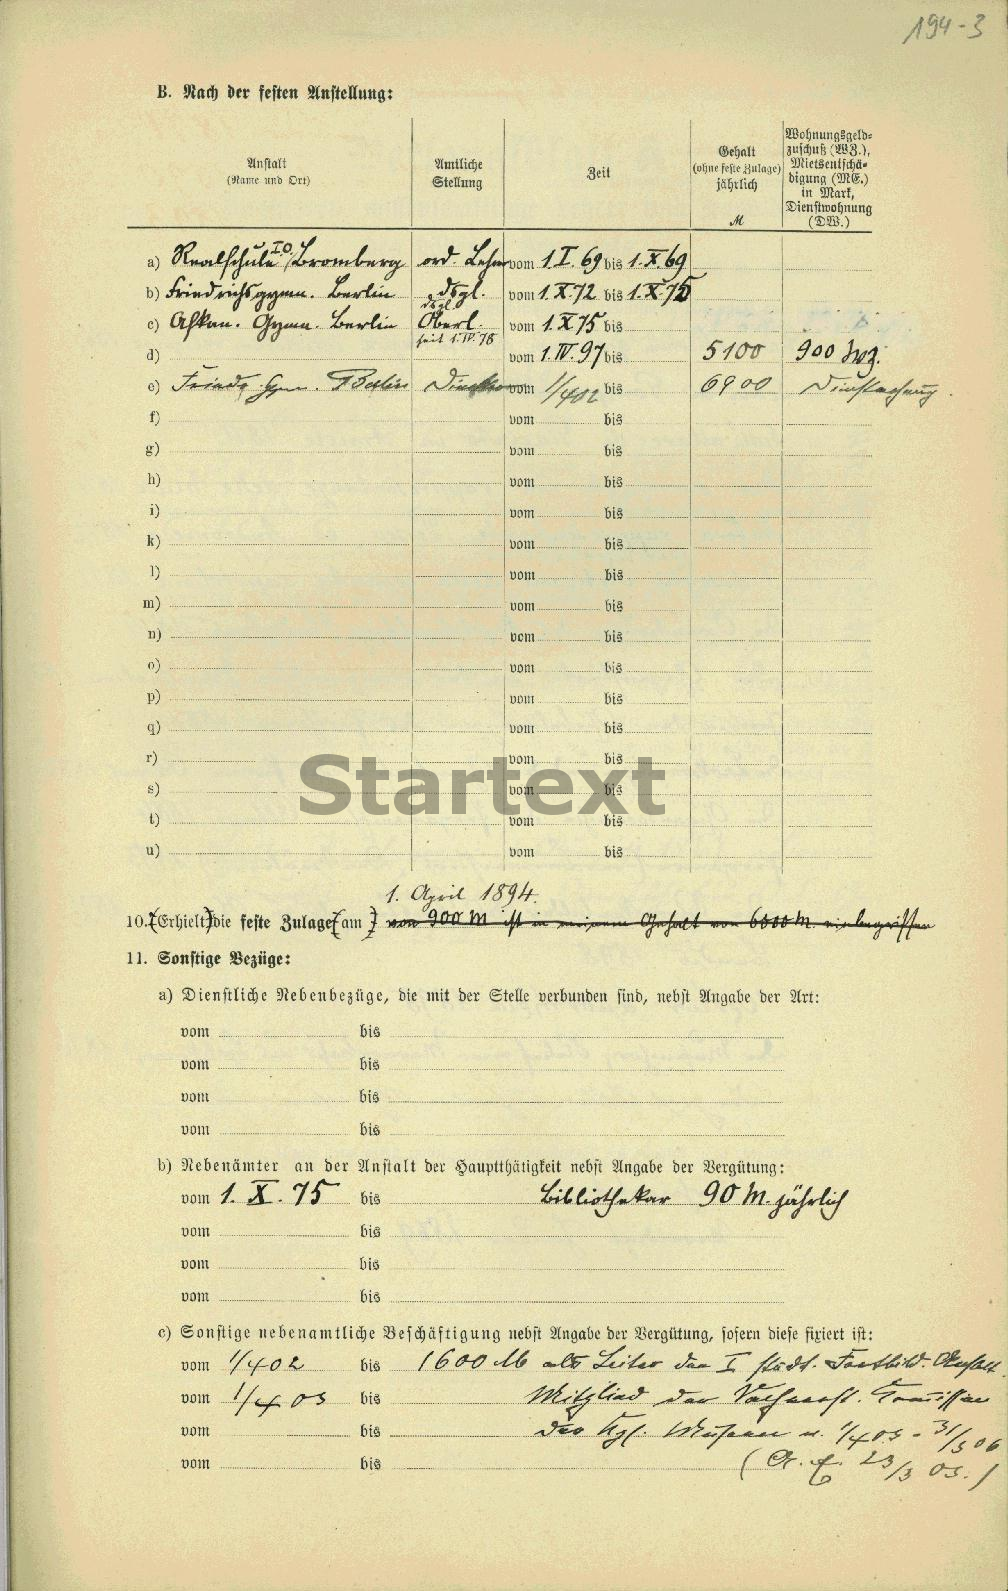 194-3
B. Nach der festen Anstellung:
Anstalt (Name und Ort)
Amtliche Stellung
Zeit
Gehalt (ohne feste Zulage) jährlich M
Wohnungsgeld-
zuschuß (WZ.),
Mietsentschä-
digung (ME.)
in Mark,
Dienstwohnung
(DW.)
a) Realschule I O / Bromberg ord. Lehrer vom 1.I.69 bis 1.X.69
b) Friedrichsgymn. Berlin dsgl. vom 1.X.72 bis 1.X.75
dsgl.
c) Askan. Gymn. Berlin Oberl. vom 1.X.75 bis
seit 1.IV.78
d) vom 1.IV.97 bis 5100 900 Wz.
e) Friedr. Gym. Berlin Direktor vom 1/402 bis 6900 Dienstwohnung
f) vom bis
g) vom bis
h) vom bis
i) vom bis
k) vom bis
l) vom bis
m) vom bis
n) vom bis
o) vom bis
p) vom bis
q) vom bis
r) vom bis
s) vom bis
Startext
t) vom bis
u) vom bis
1. April 1894.
10. [Erhielt] die feste Zulage [am] von 900 M ist in meinem Gehalt von 6000 M. einbegriffen
11. Sonstige Bezüge:
a) Dienstliche Nebenbezüge, die mit der Stelle verbunden sind, nebst Angabe der Art:
vom bis
vom bis
vom bis
vom bis
b) Nebenämter an der Anstalt der Hauptthätigkeit nebst Angabe der Vergütung:
vom 1. X. 75 bis Bibliothekar 90 M. jährlich
vom bis
vom bis
vom bis
c) Sonstige nebenamtliche Beschäftigung nebst Angabe der Vergütung, sofern diese fixiert ist:
vom 1/402 bis 1600 M als Leiter der I städt. Fortbild. Anstalt.
vom 1/4 03 bis Mitglied der Sachverst. Commission
vom bis der Kgl. Museen v. 1/4 03 - 31/3 06
vom bis ( 23/3 03.)